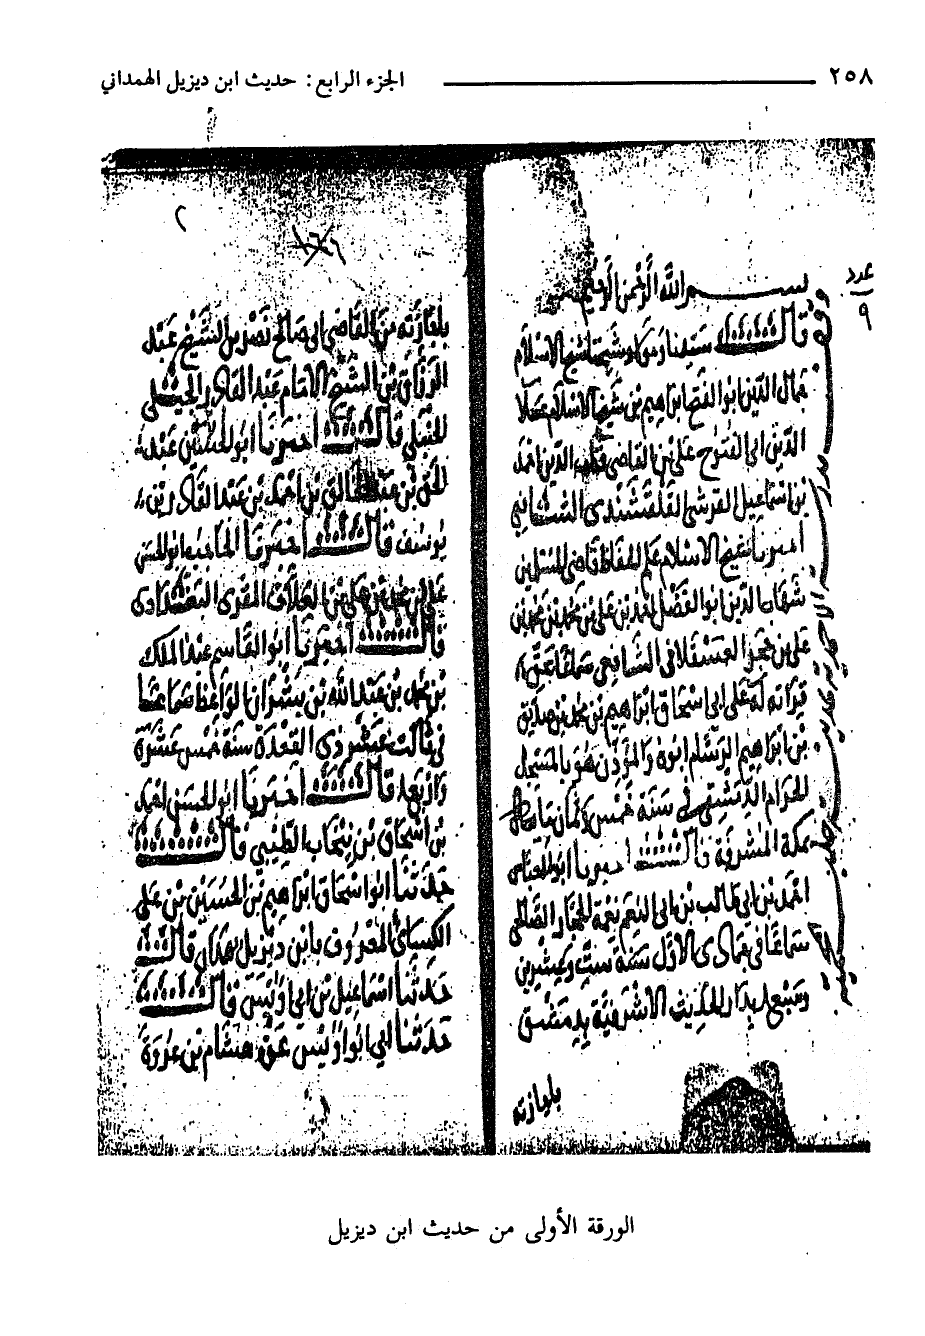 ٢٥٨
الجزء الرابع: حديث ابن ديزيل الهمداني
عدد
٩
بسم الله الرحمن الرحيم
قال سيدنا ومولانا وشيخنا شيخ الاسلام
جمال الدين ابو الفضل ابراهيم بن شيخ الاسلام علا
الدين ابي الفتوح علي بن القاضي قطب الدين احمد
بن اسماعيل القرشي القلقشندي الشافعي
اخبرنا شيخ الاسلام علم الحفاظ قاضي المسلمين
شهاب الدين ابو الفضل احمد بن علي بن محمد بن محمد بن
علي بن حجر العسقلاني الشافعي سماعا عن
قراته له على ابي اسحاق ابراهيم بن محمد بن صديق
بن ابراهيم الرسام ابوه والمؤذن هو بالمسجد
الحرام الدمشقي في سنة خمس وثمان مايه
بمكة المشرفة قال اخبرنا ابو العباس
احمد بن ابي طالب بن ابي النعم نعمة الحجار الصالحي
سماعا في جمادى الاول سنة ست وعشرين
وسبعمايه بدار الحديث الاشرفية بدمشق
باجازته
٢
باجازته من القاضي ابي صالح نصر بن الشيخ عبد
الرزاق بن الشيخ الامام عبد القادر الجيلي
الحنبلي قال اخبرنا ابو الحسين عبد
الحق بن عبد الخالق بن احمد بن عبد القادر بن
يوسف قال اخبرنا الحاجب ابو الحسن
علي بن محمد بن علي بن العلاف المقرى البغدادى
قال اخبرنا ابو القاسم عبد الملك
بن محمد بن عبد الله بن بشران الواعظ سماعا
في ثالث عشر ذي القعدة سنة خمس عشرة
واربعمايه قال اخبرنا ابو الحسن احمد
بن اسحاق بن نيخاب الطيبي قال
حدثنا ابو اسحاق ابراهيم بن الحسين بن علي
الكسائي المعروف بابن ديزيل بهمدان قال
حدثنا اسماعيل بن ابي اويس قال
حدثنا ابي ابو اويس عن هشام بن عروة
الورقة الأولى من حديث ابن ديزيل